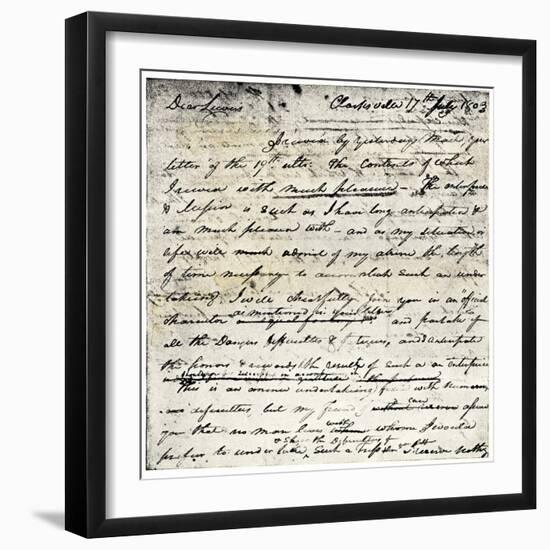 Dear Lewis Clarksville 17th July 1803
I received by yesterdays Mail your
letter of the 19th ulto: the Contents of which
I received with much pleasure — The enterprise
& Mission is Such as I have long anticipated &
am much pleased with — and as my situation in
life will admit of my absence the length
of time necessary to accomplish Such an under
taking I will chearfully join you in an "official
as mentioned in your letter
Charrector and partake of
all the Dangers Difficulties & fatigues, and anticipate
the honors & rewards of the result of Such an enterprise
This is an undertaking with numerous
difficulties, but my friend, I can assure
you that no man lives with whome I would
& Share the Difficulties of
prefur to under take Such a trip I reserve nothing